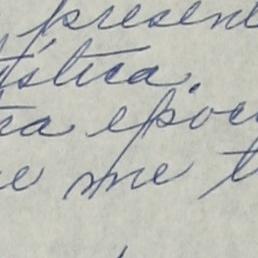 present
ística.
ra epoc
e me t